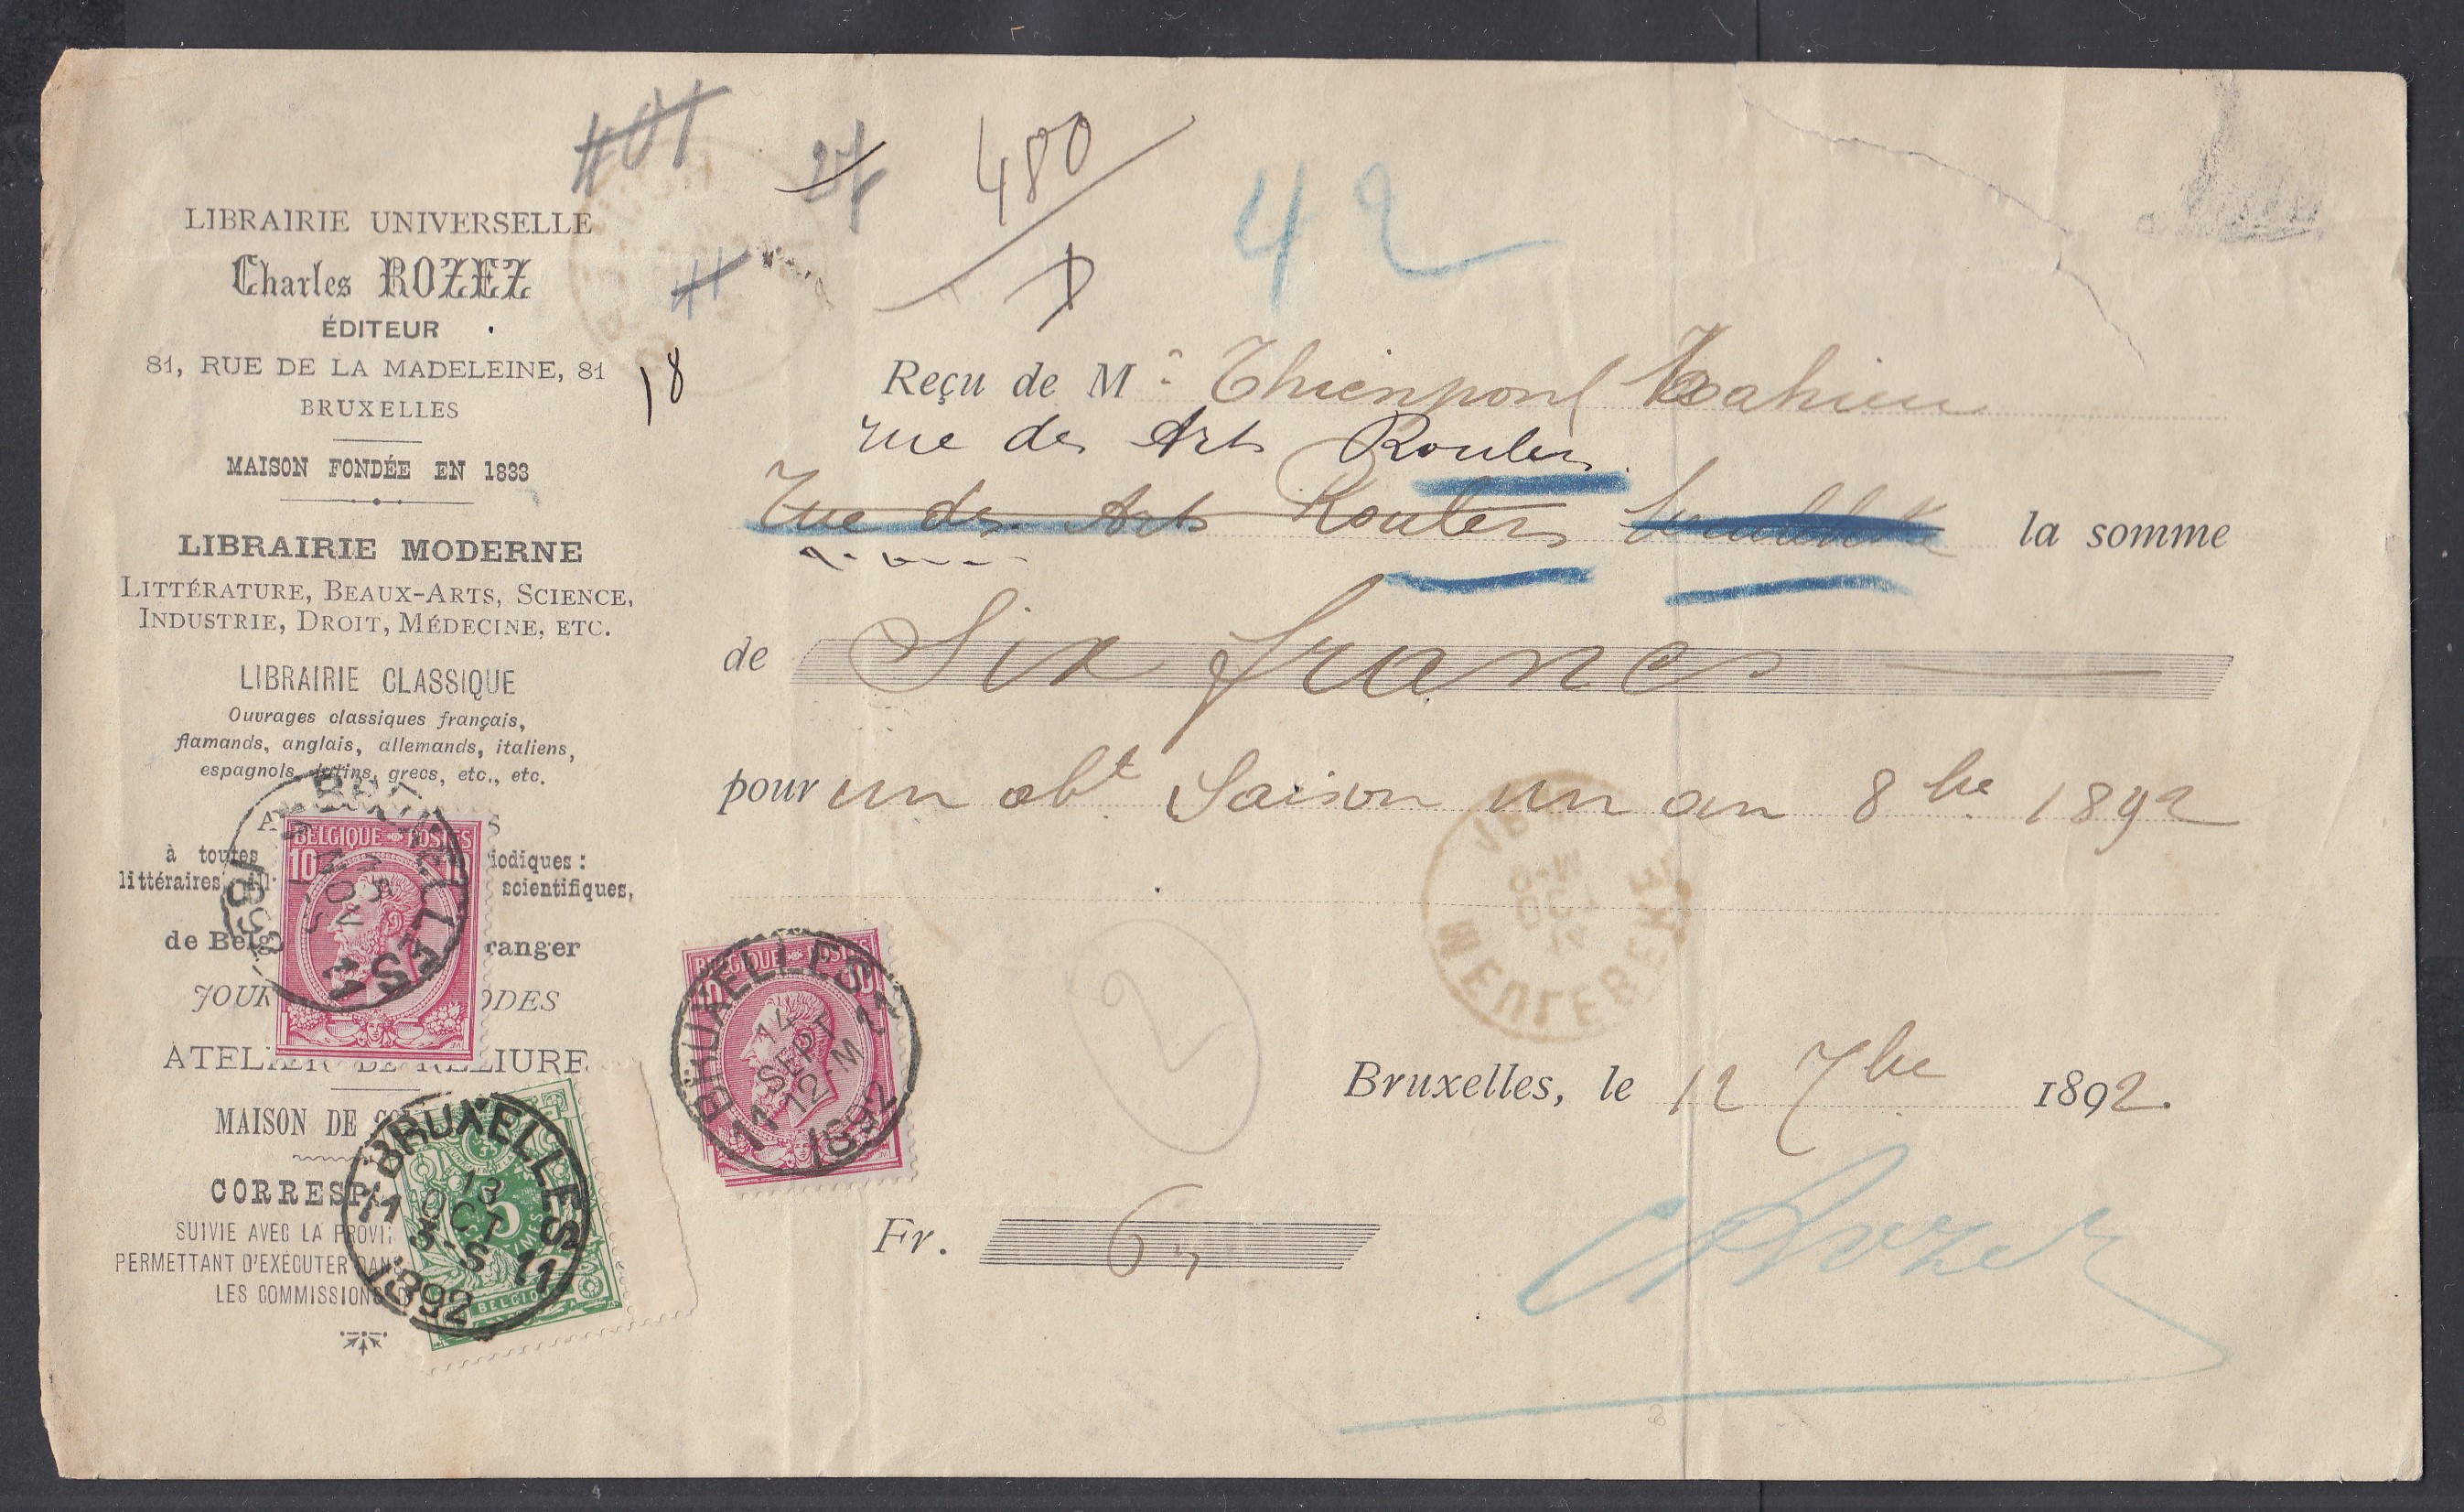 401
27
480
42
LIBRAIRIE UNIVERSELLE
Charles ROZEZ
ÉDITEUR
81, RUE DE LA MADELEINE, 81
BRUXELLES
18
MAISON FONDÉE EN 1833
LIBRAIRIE MODERNE
LITTÉRATURE, BEAUX-ARTS, SCIENCE,
INDUSTRIE, DROIT, MÉDECINE, ETC.
LIBRAIRIE CLASSIQUE
Ouvrages classiques français,
flamands, anglais, allemands, italiens,
espagnols, latins, grecs, etc., etc.
à toutes iodiques :
littéraires, scientifiques,
de Belg ranger
JOUR ODES
ATELIER DE RELIURE
MAISON DE CO
CORRESP
SUIVIE AVEC LA PROVI
PERMETTANT D'EXÉCUTER DANS
LES COMMISSIONS D
BELGIQUE POSTES
10
BRUXELLES
NOV
1892
BELGIQUE POSTES
10
BRUXELLES 11
14
SEPT
12-M
1892
11
5
BELGIQUE
BRUXELLES
13
OCT
3-S
11 11
1892
Reçu de Mr Thienpont Mahieu
rue des Arts Roulers
Rue des Arts Roulers la somme
de Six francs
pour un abt Saison un an 8bre 1892
MEULEBEKE
OCT
Bruxelles, le 12 7bre 1892.
2
Fr. 6 "
C Rozez